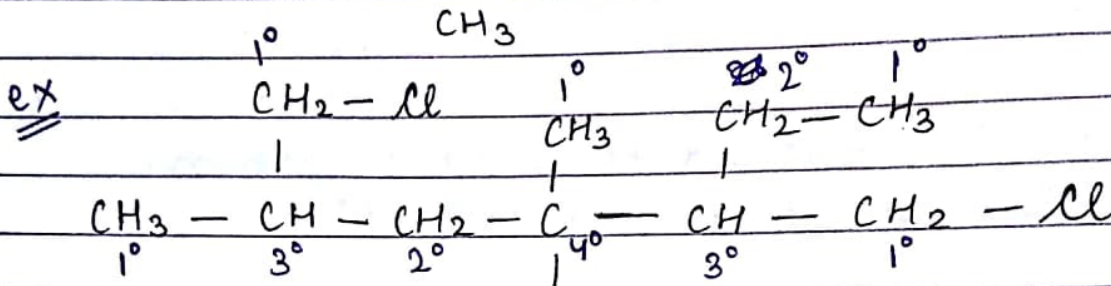 CH3
1° 1° 2° 1°
ex CH2 — Cl CH3 CH2 — CH3
| | |
CH3 — CH — CH2 — C — CH — CH2 — Cl
1° 3° 2° | 4° 3° 1°